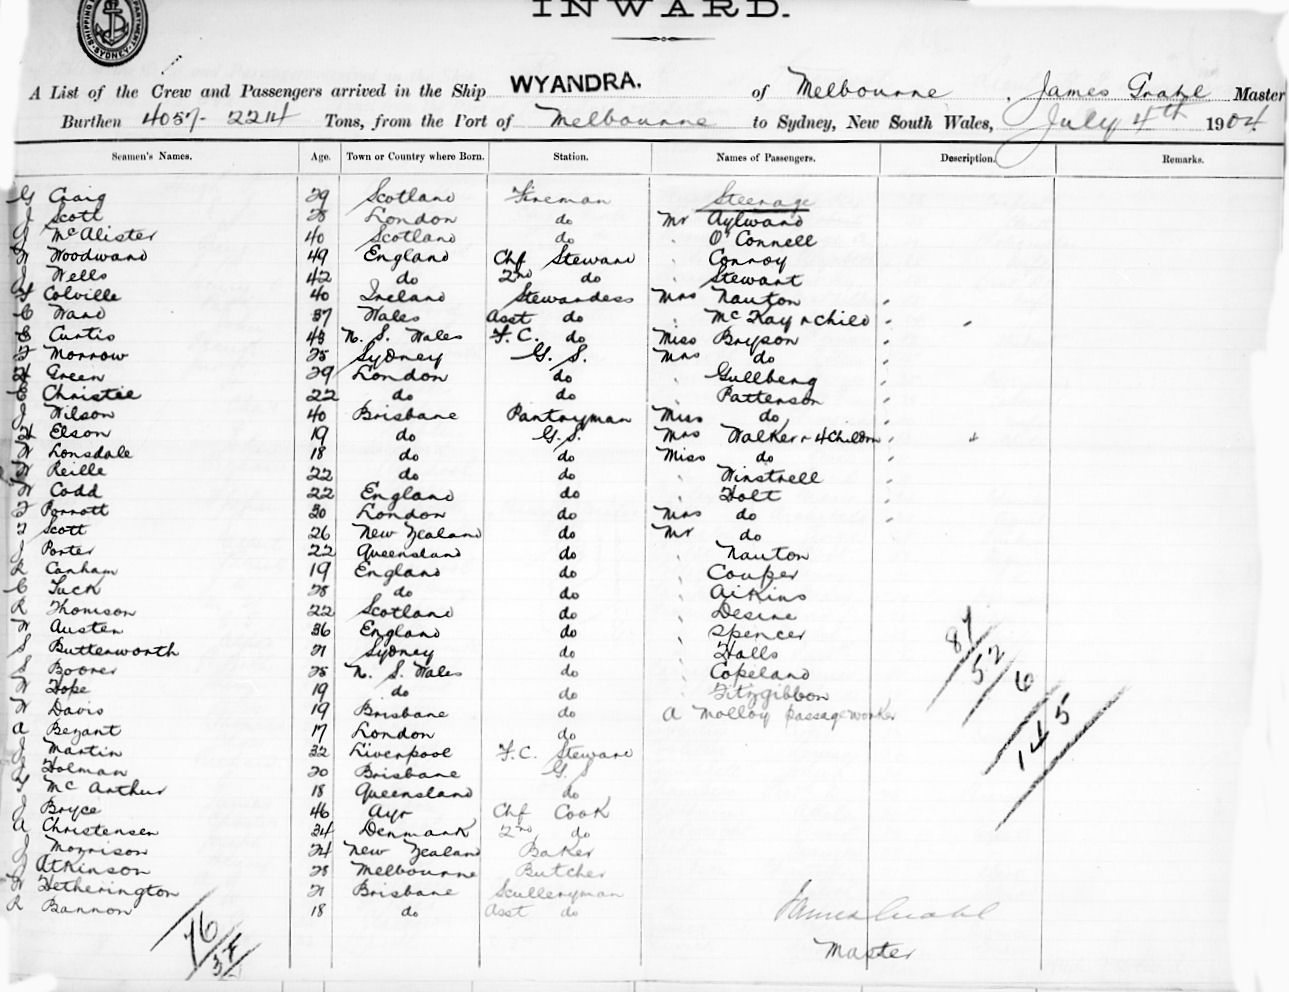 INWARD.
SHIPPING DEPARTMENT SYDNEY
A List of the Crew and Passengers arrived in the Ship WYANDRA. of Melbourne, James Grahl Master
Burthen 4057- 2214 Tons, from the Port of Melbourne to Sydney, New South Wales, July 4th 1904
Seamen's Names. Age. Town or Country where Born. Station. Names of Passengers. Description. Remarks.
G Craig 29 Scotland Fireman Steerage
J Scott 28 London do Mr Aylward
J McAlister 40 Scotland do " O'Connell
W Woodward 49 England Chf Steward " Conroy
J Wells 42 do 2nd do " Stewart
Colville 40 Ireland Stewardess Mrs Nauton
C Ward 37 Wales Asst do " McKay & child
E Curtis 43 N. S. Wales F.C. do Miss Bryson
F Morrow 25 Sydney G. S. Mrs do
H Green 29 London do " Gullberg
E Christie 22 do do " Patterson
J Wilson 40 Brisbane Pantryman Miss do
H Elson 19 do G.S. Mrs Walker & 4 Childrn
W Lonsdale 18 do do Miss do
W Reille 22 do do " Winstrell
W Codd 22 England do " Holt
F Perrott 30 London do Mrs do
F Scott 26 New Zealand do Mr do
J Porter 22 Queensland do " Nauton
R Canham 19 England do " Couper
C Tuck 28 do do " Aitkins
R Thomson 22 Scotland do " Desire
W Austen 36 England do " Spencer
S Butterworth 21 Sydney do " Halls
S Boorer 25 N. S. Wales do " Copeland
W Hope 19 do do " Fitzgibbon
W Davis 19 Brisbane do A Molloy passage worker
A Bezant 17 London do
J Martin 32 Liverpool F.C. Steward
J Holman 20 Brisbane G. S.
McArthur 18 Queensland do
J Bryce 46 Ayr Chf Cook
A Christensen 34 Denmark 2nd do
J Morrison 24 New Zealand Baker
J Atkinson 28 Melbourne Butcher
W Hetherington 21 Brisbane Sculleryman
R Bannon 18 do Asst do
87
52
6
145
76
James Grahl
Master